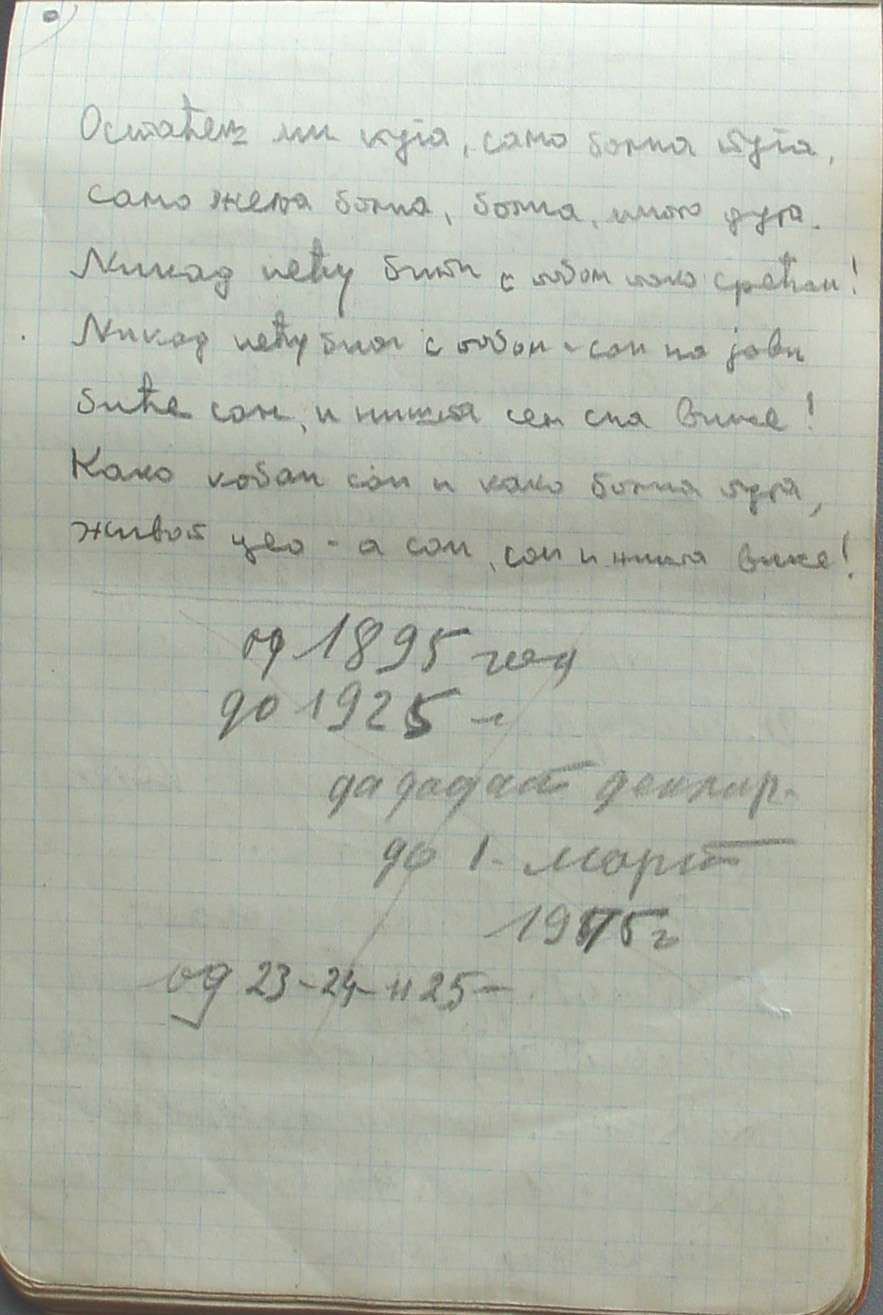 Остаћеш ми куга, само болна туга,
само жеља болна, болна, много дуга.
Никад нећу бити с тобом тако срећан!
Никад нећу бити с тобом - сан на јави
биће сан, и ништа сем сна више!
Како кобан сан и како болна туга,
живот цео - а сан, сан и ништа више!
од 1895 год
до 1925 -
да дадат деклар.
до 1. март
од 23-24- и 25-